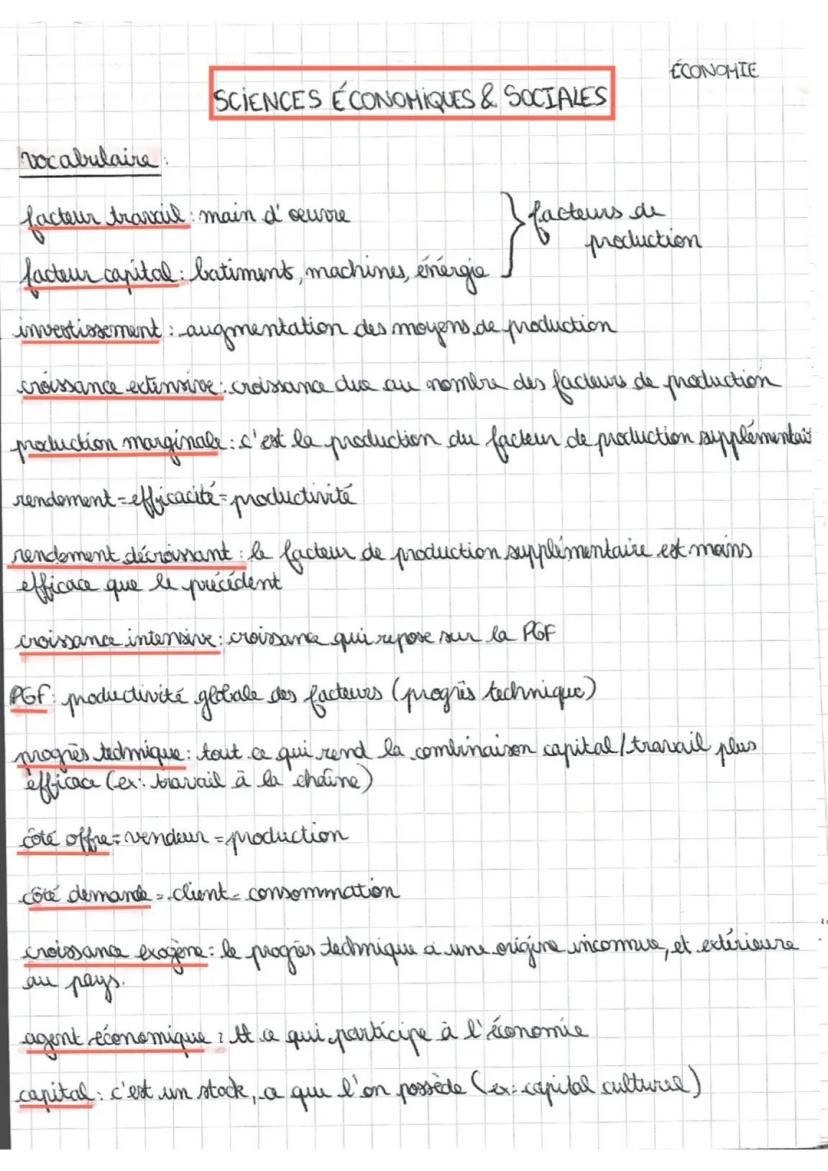 ÉCONOMIE
SCIENCES ÉCONOMIQUES & SOCIALES
vocabulaire :
facteur travail : main d'oeuvre
facteurs de
production
facteur capital : batiments, machines, énérgie
investissement : augmentation des moyens de production
croissance extensive : croissance due au nombre des facteurs de production
production marginale : c'est la production du facteur de production supplémentair
rendement = efficacité = productivité
rendement décroissant : le facteur de production supplémentaire est moins
efficace que le précédent
croissance intensive : croissance qui repose sur la PGF
PGF : productivité globale des facteurs (progrès technique)
progrès technique : tout ce qui rend la combinaison capital/travail plus
efficace (ex : travail à la chaîne)
côté offre = vendeur = production
côté demande = client = consommation
croissance exogène : le progrès technique a une origine inconnue, et extérieure
au pays.
agent économique : tt ce qui participe à l'économie
capital : c'est un stock, ce que l'on possède (ex : capital culturel)